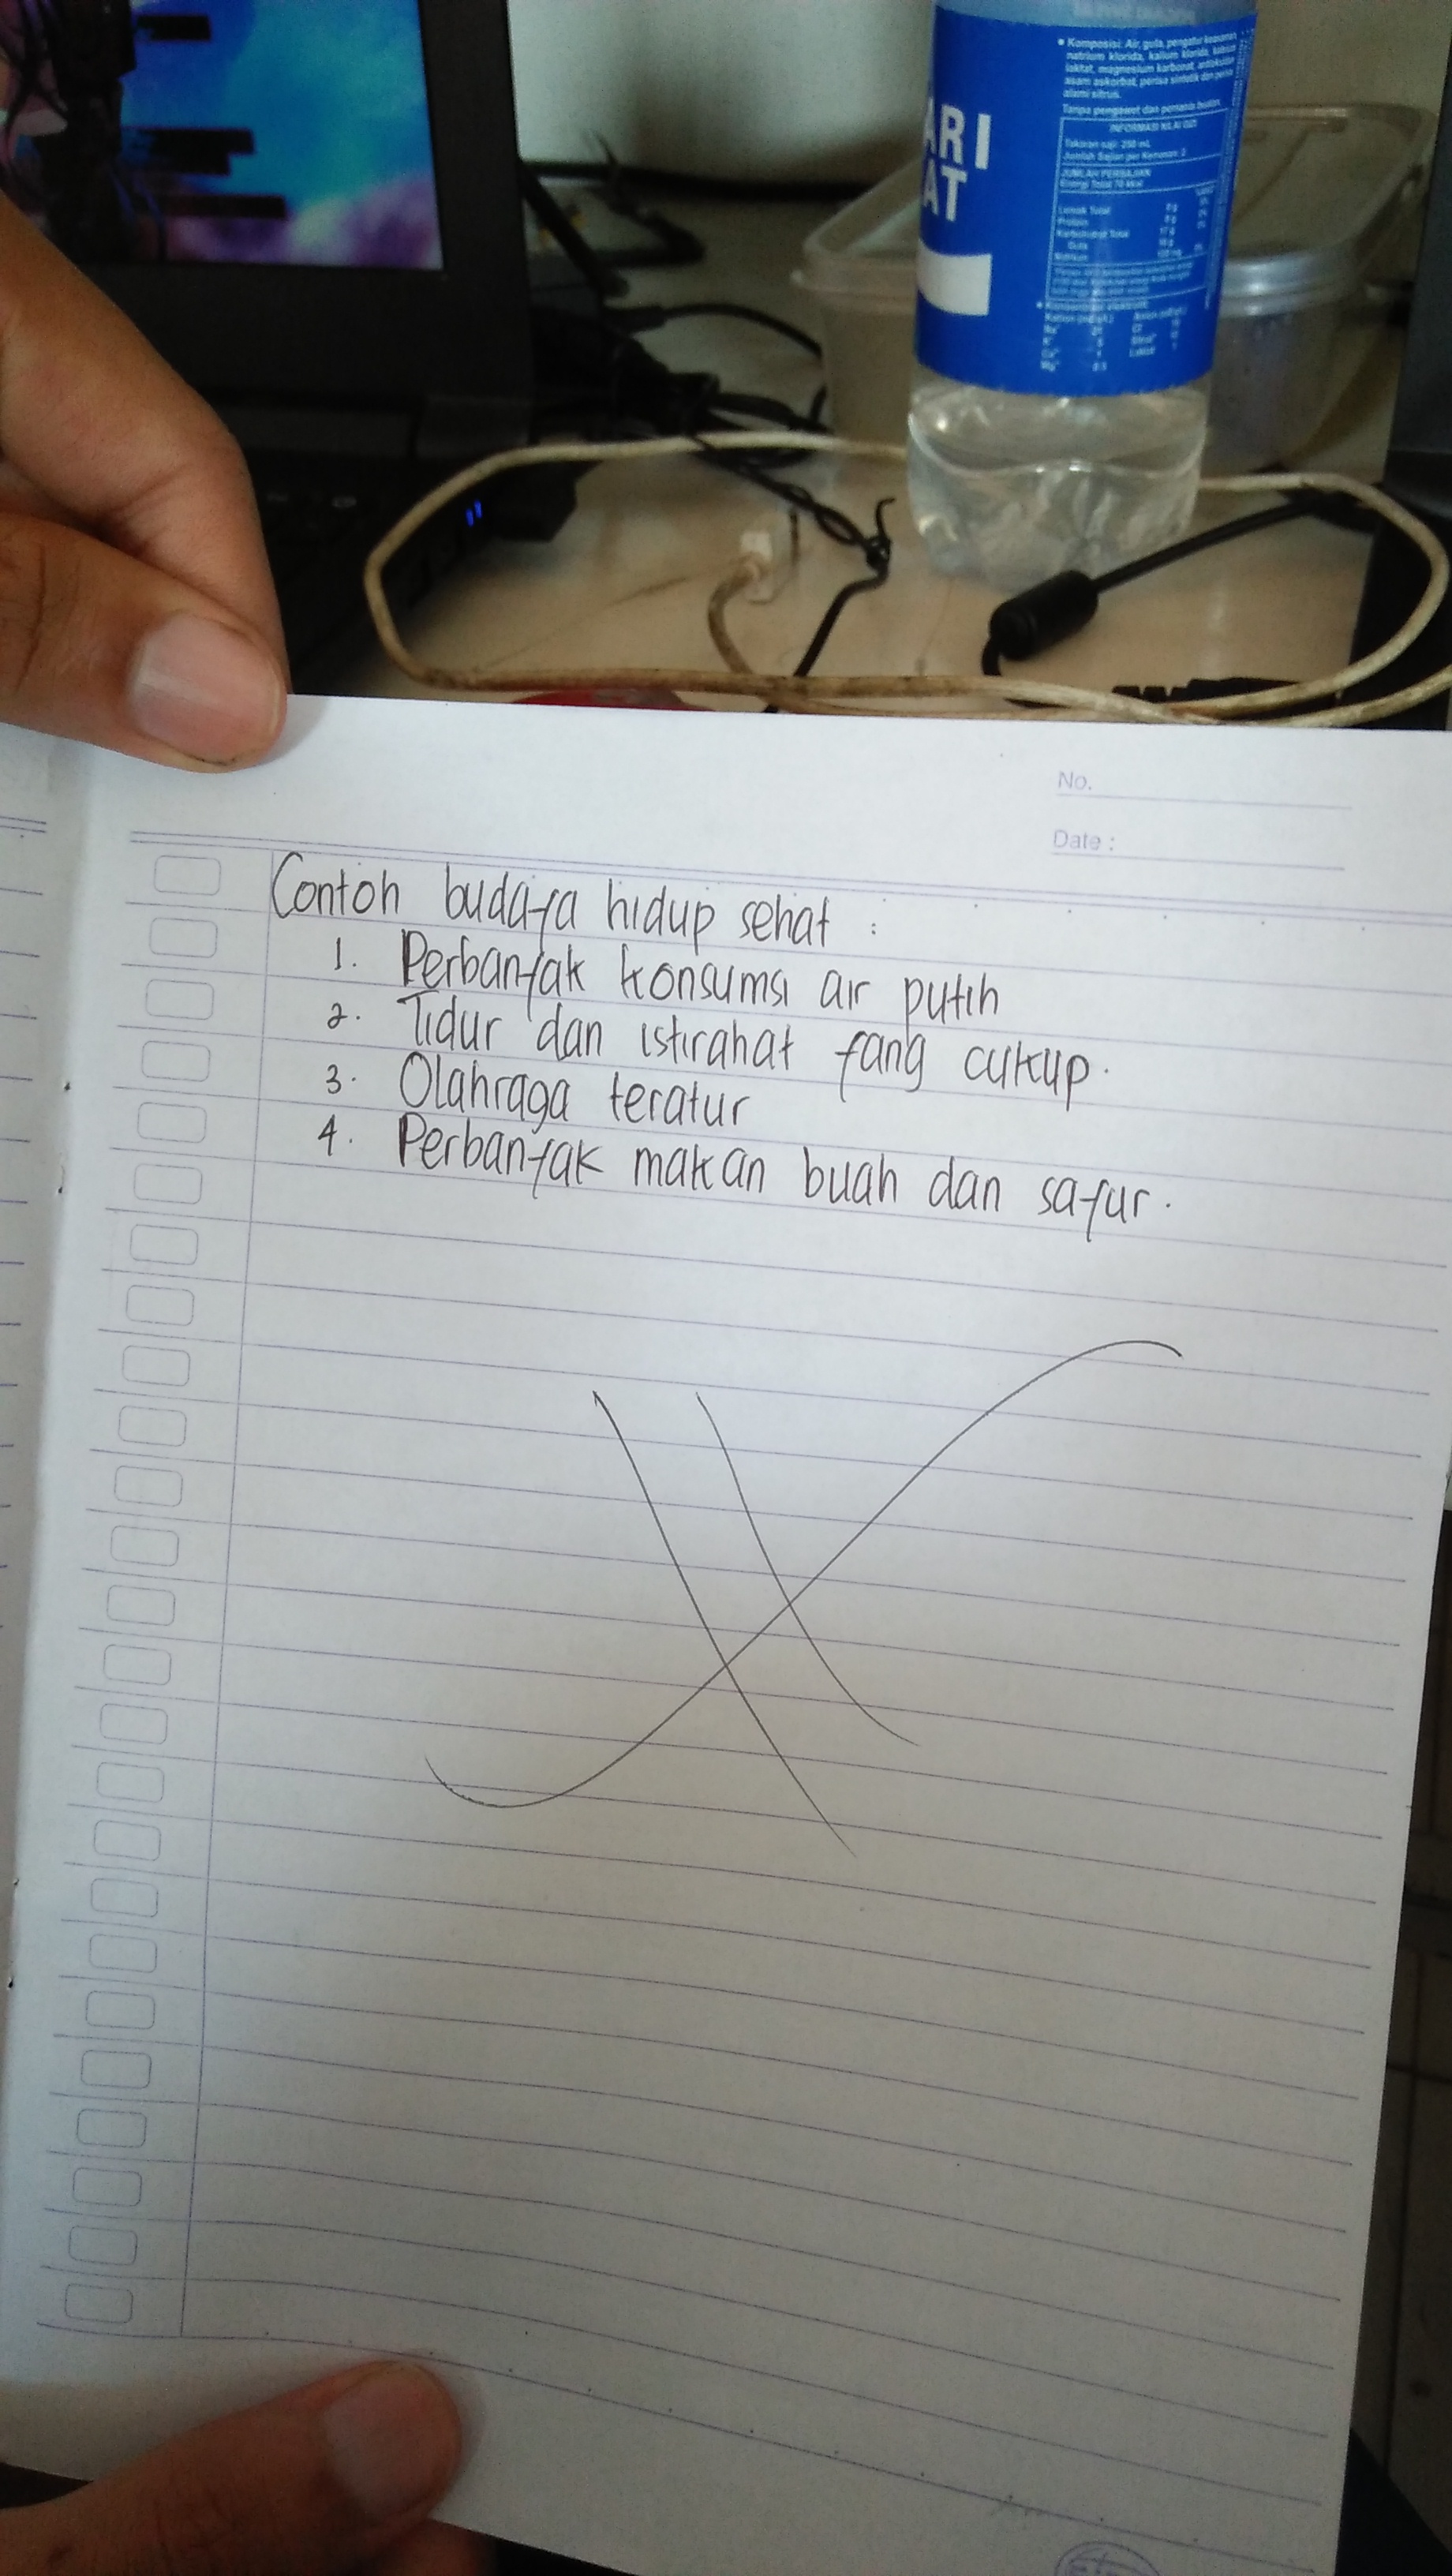 • Komposisi: Air, gula, pengatur keasaman
natrium klorida, kalium klorida, kalsium
laktat, magnesium karbonat, antioksidan
asam askorbat, perisa sintetik dan perisa
alami sitrus.
Tanpa pengawet dan pemanis buatan
INFORMASI NILAI GIZI
Takaran saji: 250 mL
Jumlah Sajian per Kemasan: 2
JUMLAH PERSAJIAN
Energi Total 70 kkal
Lemak Total 0 g
Protein 0 g
Karbohidrat Total 17 g
Gula
Natrium
ARI
AT
No.
Date :
Contoh budaya hidup sehat :
1. Perbanyak konsumsi air putih
2. Tidur dan istirahat yang cukup.
3. Olahraga teratur
4. Perbanyak makan buah dan sayur.